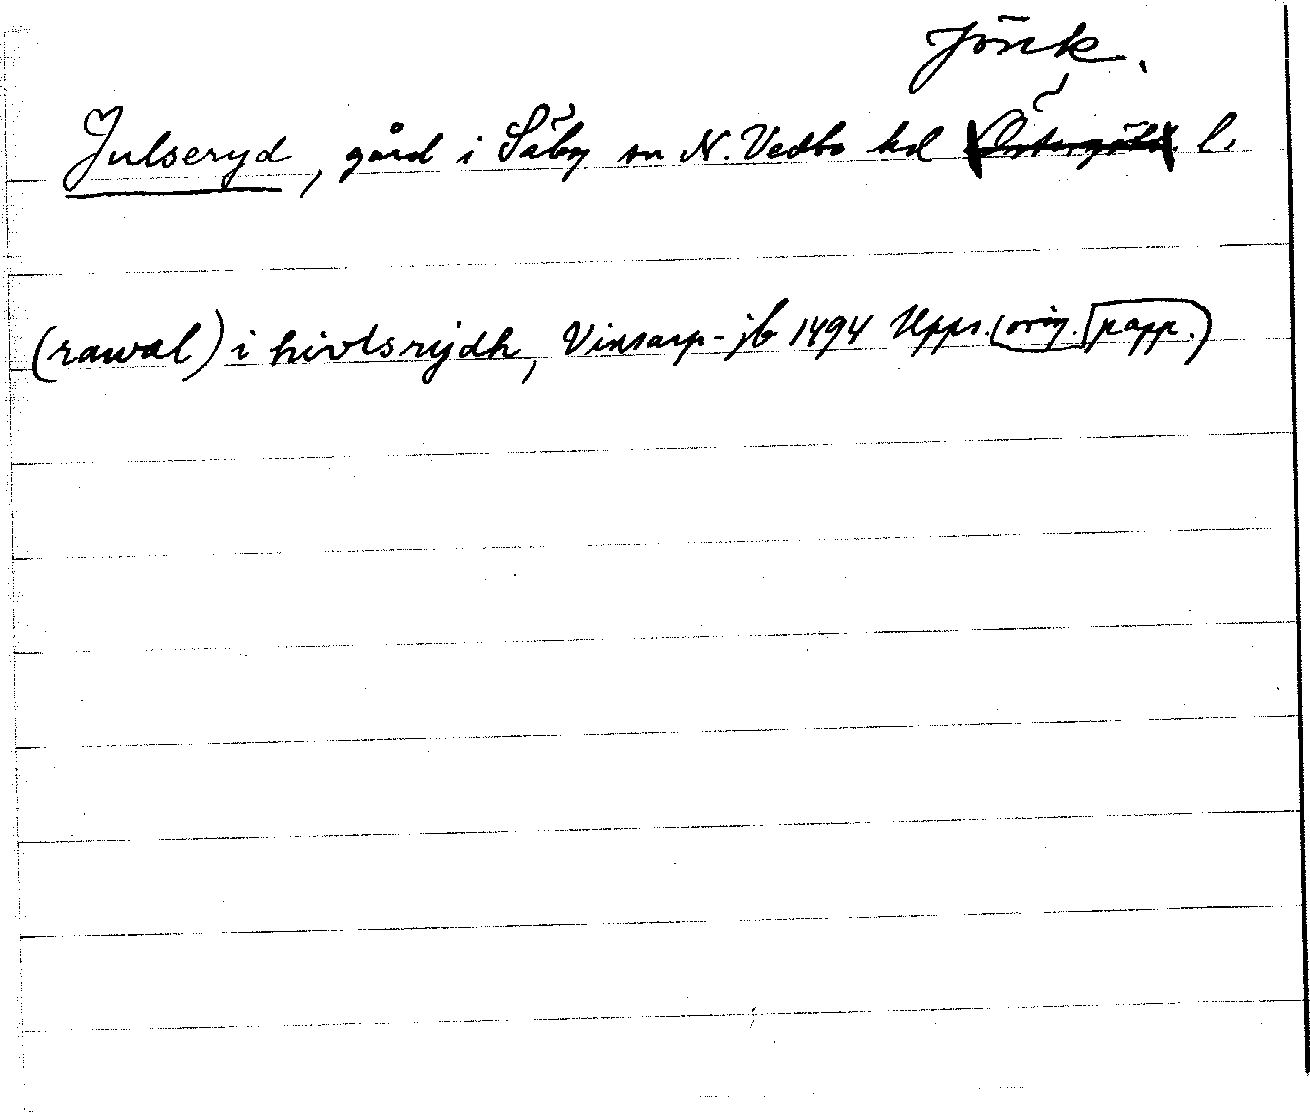 Jönk.
Julseryd, gård i Säby sn N. Vedbo hd Östergötl. l.
(rawal) i hivlsrydh, Vinsarp-jb 1494 Upps. (orig. papp.)